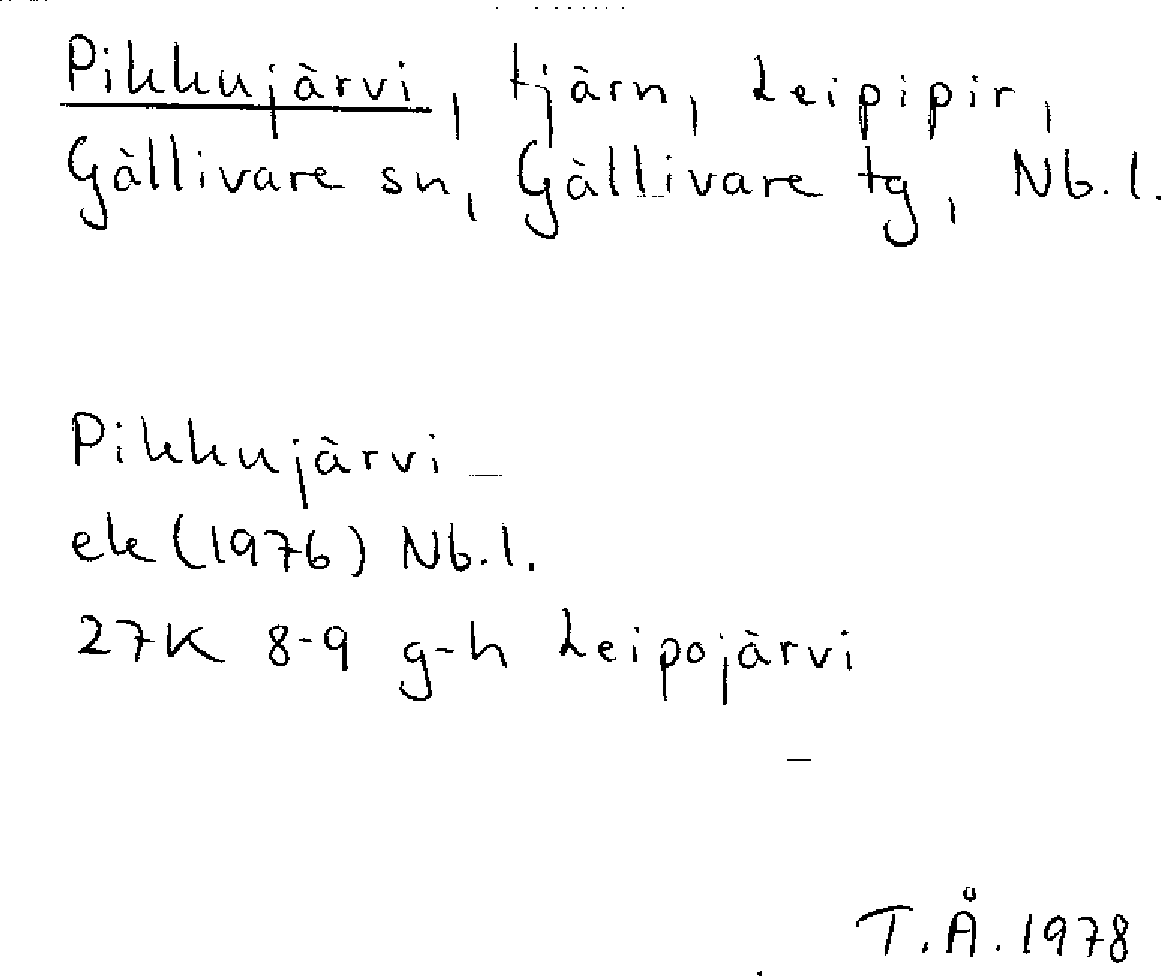 Pikkujärvi, tjärn, Leipipir,
Gällivare sn, Gällivare tg, Nb.l.
Pikkujärvi
ek (1976) Nb.l.
27K 8-9 g-h Leipojärvi
T.Å. 1978